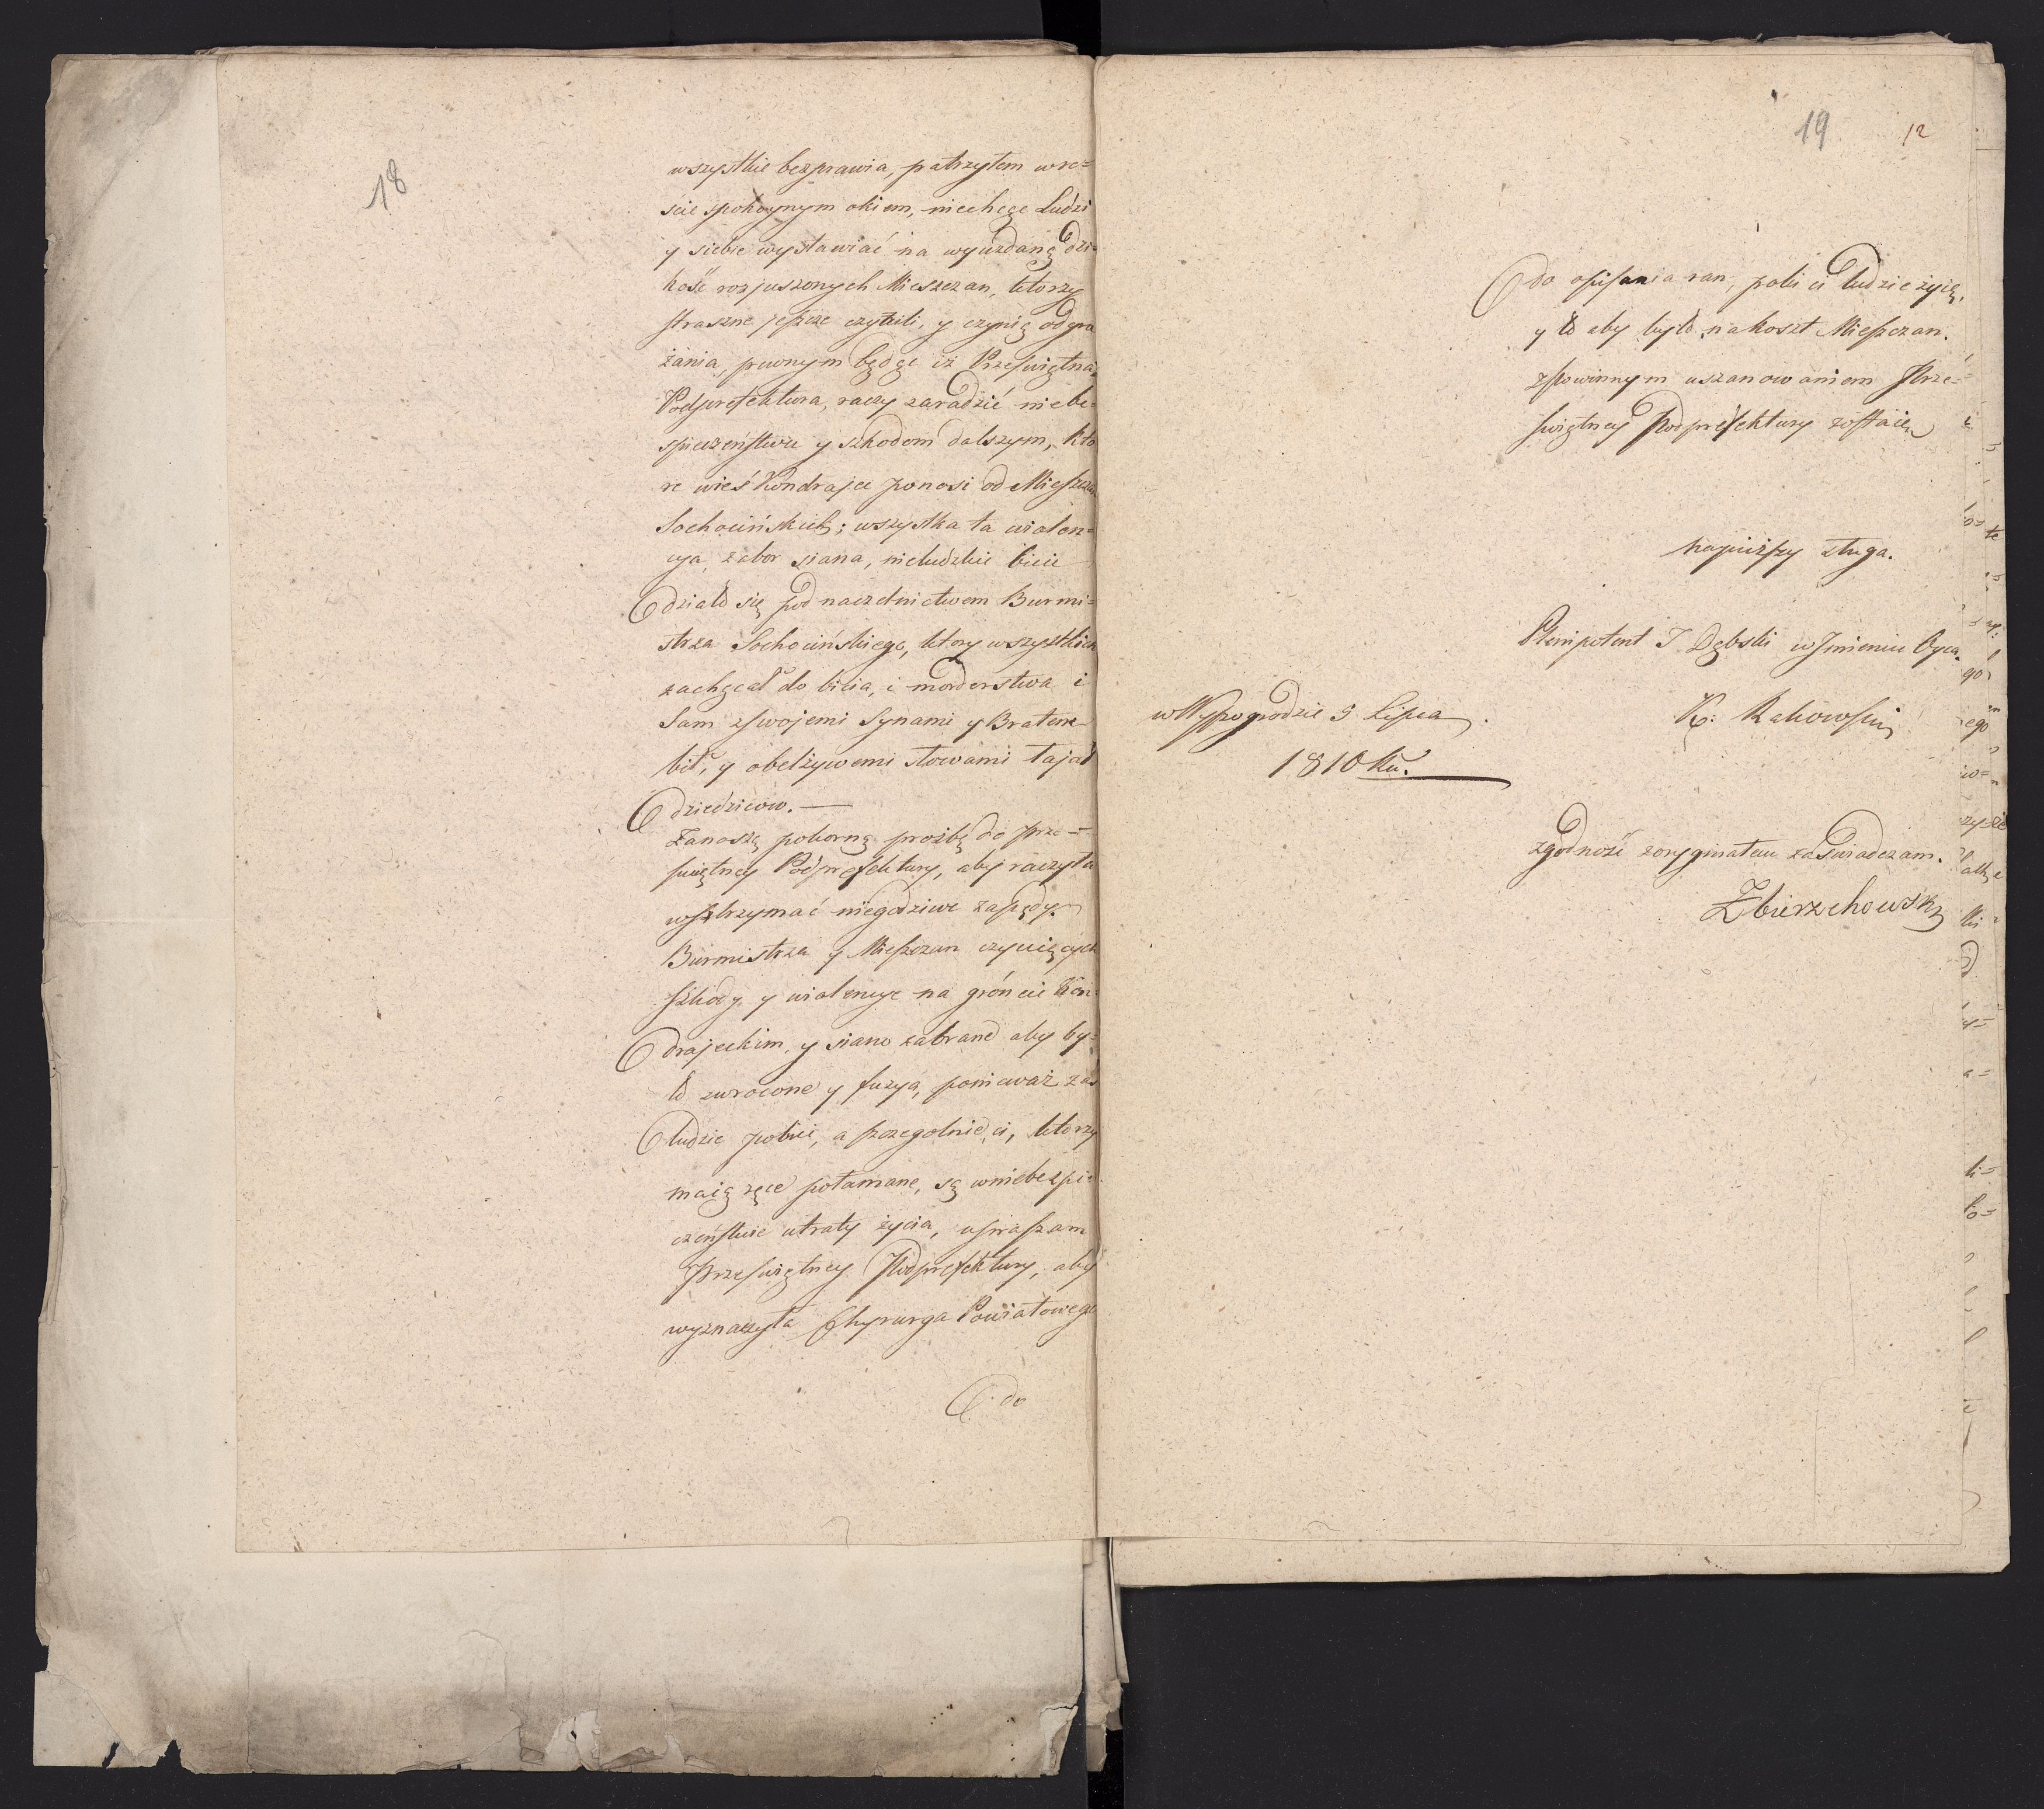 18
wszystkie bezprawia, patrzyłem wre=
ście spokoynym okiem, niechcąc Ludzi
y siebie wystawiać na wyuzdaną dzi=
kość rozjuszonych Mieszczan, ktorzy
straszne jeszcze czynili, y czynią odgra
żania, pewnym będąc iż Przeświętna
Podprefektura, raczy zaradzić niebe=
spieczeństwu y szkodom dalszym, kto
re wieś Kondrajec ponosi od Mieszczan
Sochocińskich; wszystka ta wiolen=
cya, zabor siana, nieludzkie bicie
działo się pod naczelnictwem Burmi=
strza Sochocińskiego, ktory wszystkich
zachęcał do bicia, i morderstwa i
Sam zswojemi Synami y Bratem
bił, y obelżywemi słowami łajał
dziedzicow. —
Zanoszę pokorną prożbę do prze=
świętney Podprefektury, aby raczyła
wstrzymać niegodziwe zapędy
Burmistrza y Mieszczan czyniących
szkody y wiolencye na gróncie Kon=
drajeckim, y siano zabrane aby by=
ło zwrocone y fuzya, ponieważ zas
ludzie pobici, a szczegolnie ci, ktorzy
maią ręce połamane, są wniebezpie
czeństwie utraty życia, upraszam
Przeświętney Podprefektury, aby
wyznaczyła Chyrurga Powiatowego
do
19
12
do opisania ran, poki ci ludzie żyią,
y to aby było nakoszt Mieszczan.
zpowinnym uszanowaniem Prze=
świętney Podprefektury zostaię
nayniższy sługa.
Plenipotent J Dębski wImieniu Oyca.
K: Rakowski
wWyszogrodzie 5 Lipca
1810 Ru.
zgodność zoryginałem zaświadczam.
Zbierzchowski